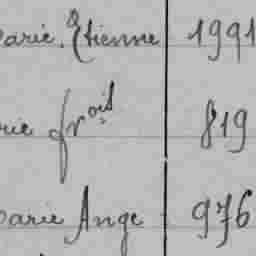 Marie Etienne 1991
Marie frois 819
Marie Ange 976